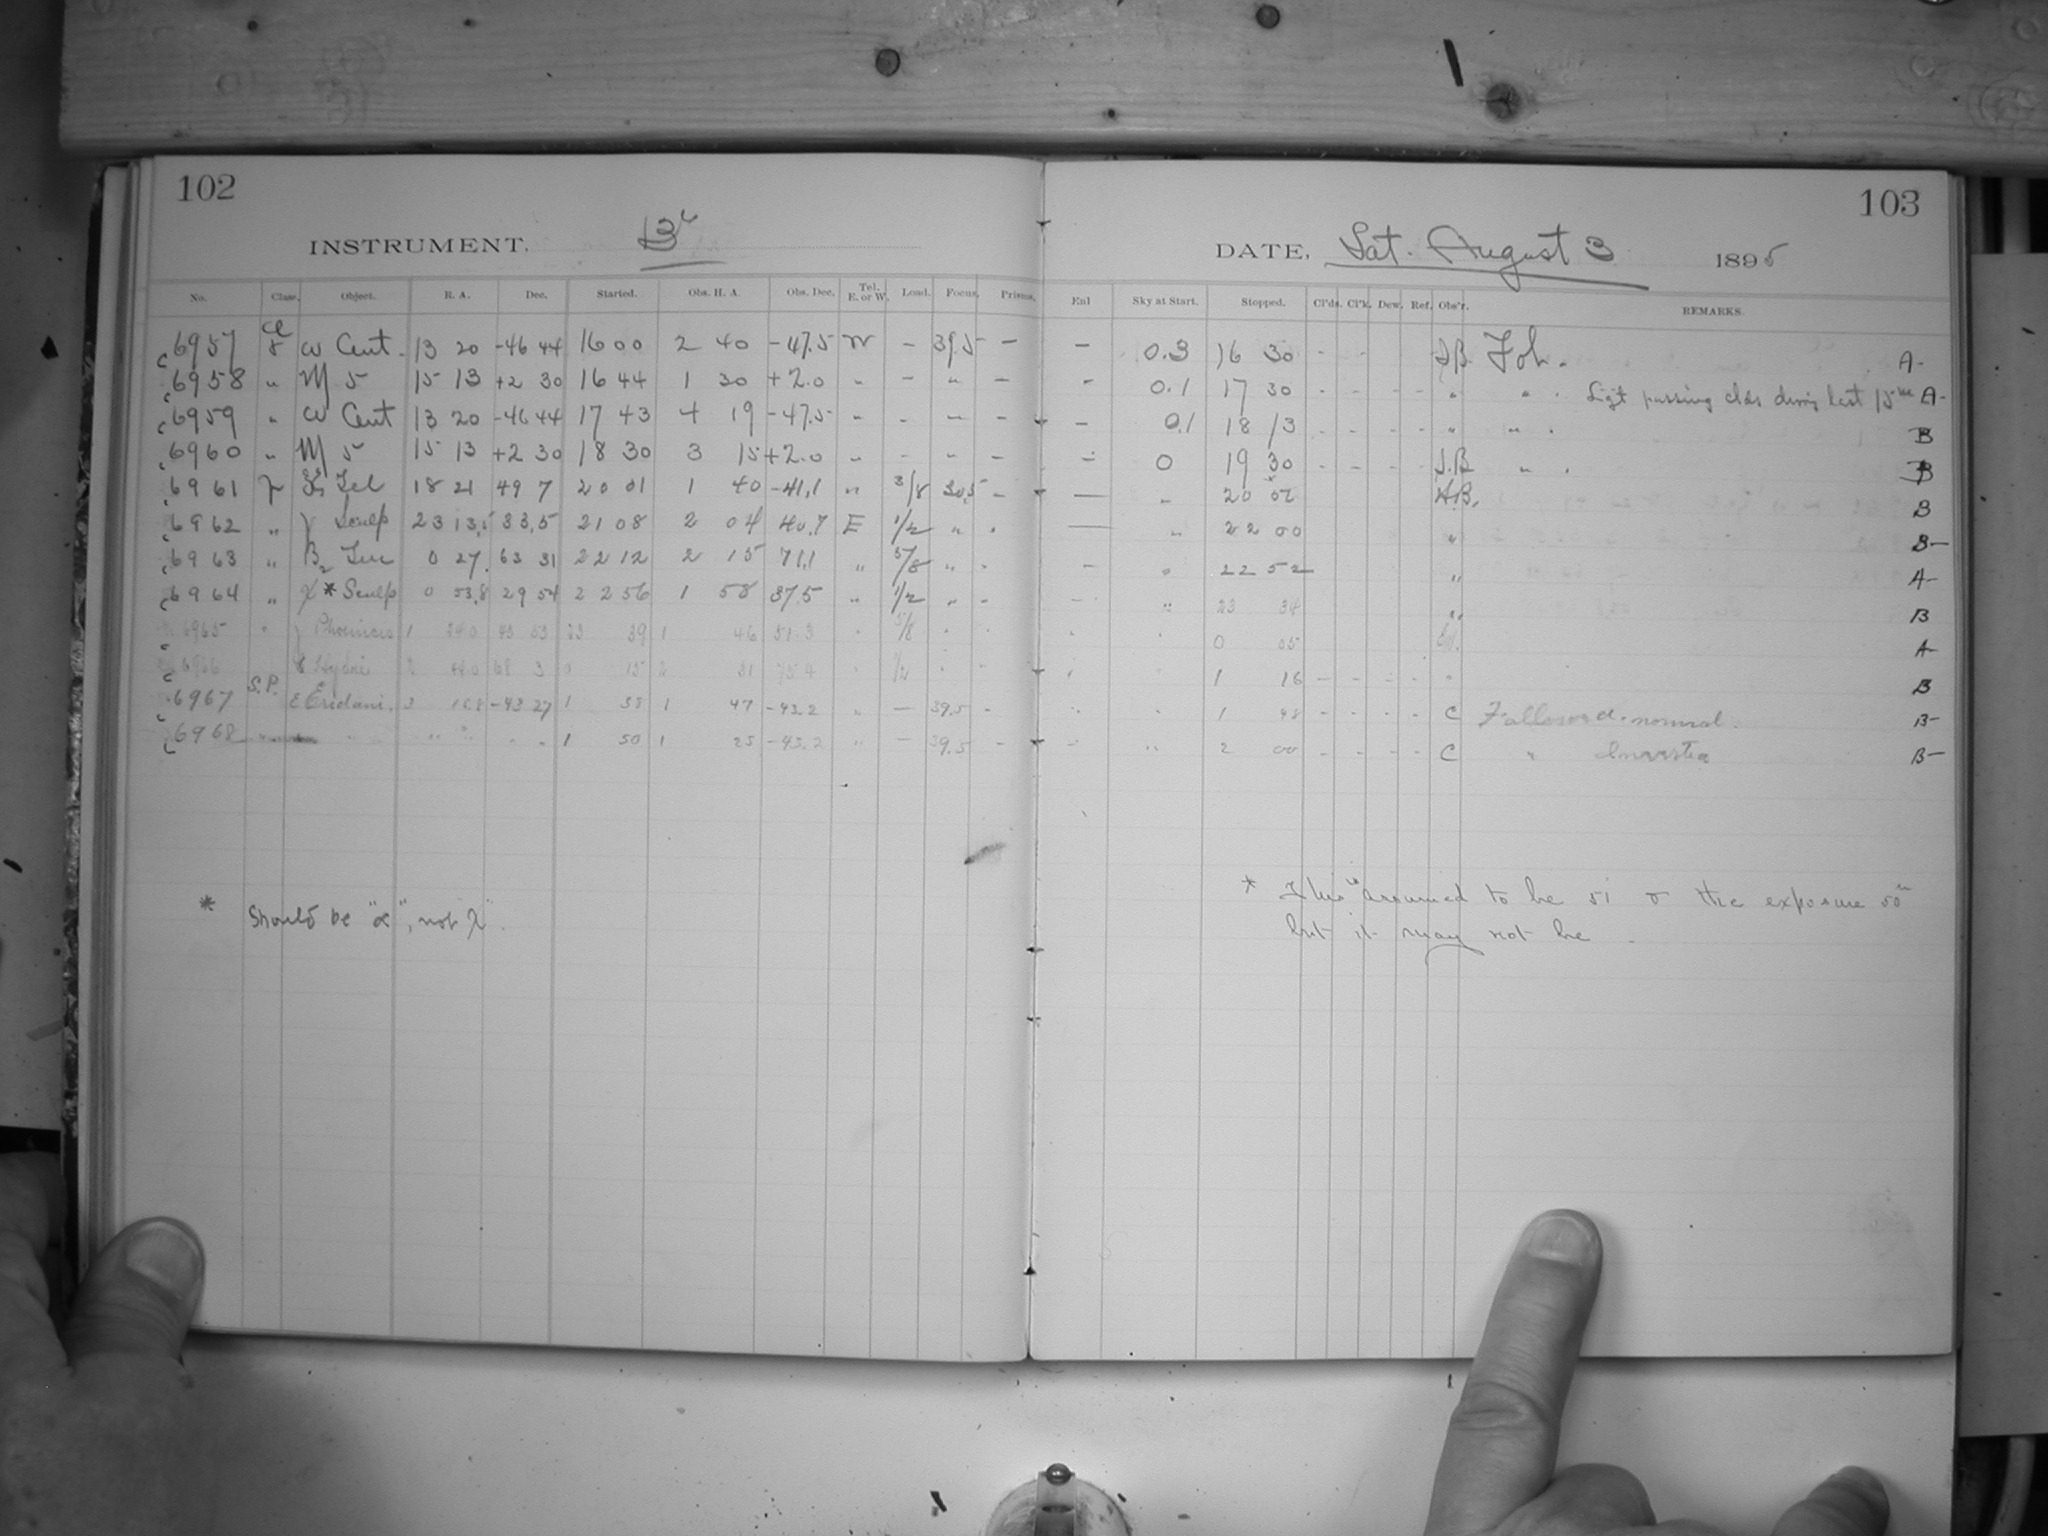 102
103
INSTRUMENT. 13"
DATE, Sat. August 3 1895
No. Class. Object. R. A. Dec. Started. Obs. H. A. Obs. Dec. Tel. E. or W. Load. Focus. Prisms. Enl Sky at Start. Stopped. Cl'ds. Cl'k. Dew. Ref. Obs'r. REMARKS.
6957 Cl ω Cent. 13 20 -46 44 16 00 2 40 -47.5 W - 39.5 - - 0.3 16 30 - - Foh. A-
6958 " M 5 15 13 +2 30 16 44 1 30 +2.0 " - " - - 0.1 17 30 - - - - " " . Light passing clds during last 15m A-
6959 " ω Cent 13 20 -46 44 17 43 4 19 -47.5 " - - - - 0.1 18 13 - - - - " " . B
6960 " M 5 15 13 +2 30 18 30 3 15 +2.0 " - " - - 0 19 30 - - - - " . B
6961 Tel 18 21 49 7 20 01 1 40 -41.1 " 3/8 30.5 - — " 20 02* B
6962 " γ Sculp 23 13.5 33.5 21 08 2 04 40.7 E 1/2 " " — " 22 00 " B-
6963 " β2 Tuc 0 27. 63 31 22 12 2 15 71.1 " 5/8 " " - " 22 52 " A-
6964 " χ* Sculp 0 53.8 29 54 22 56 1 58 37.5 " 1/2 " - - " 23 34 " B
6965 " γ Phoenicis 1 24.0 43 53 23 39 1 46 51.3 " 5/8 " " 0 05 A-
6966 Hydri 2 68 3 0 15 2 31 75.4 " 1/2 " " 1 16 - - - - " B
6967 S.P. ε Eridani. 3 15.8 -43 27 1 38 1 47 -43.2 " — 39.5 - " 1 48 - - - - C Followed. normal. B-
6968 " " " " " 1 50 1 25 -43.2 " — 39.5 - - " 2 00 - - - - C " Inverted B-
* Should be "α", not χ".
* This is assumed to be 51 & the exposure 50m
but it may not be .